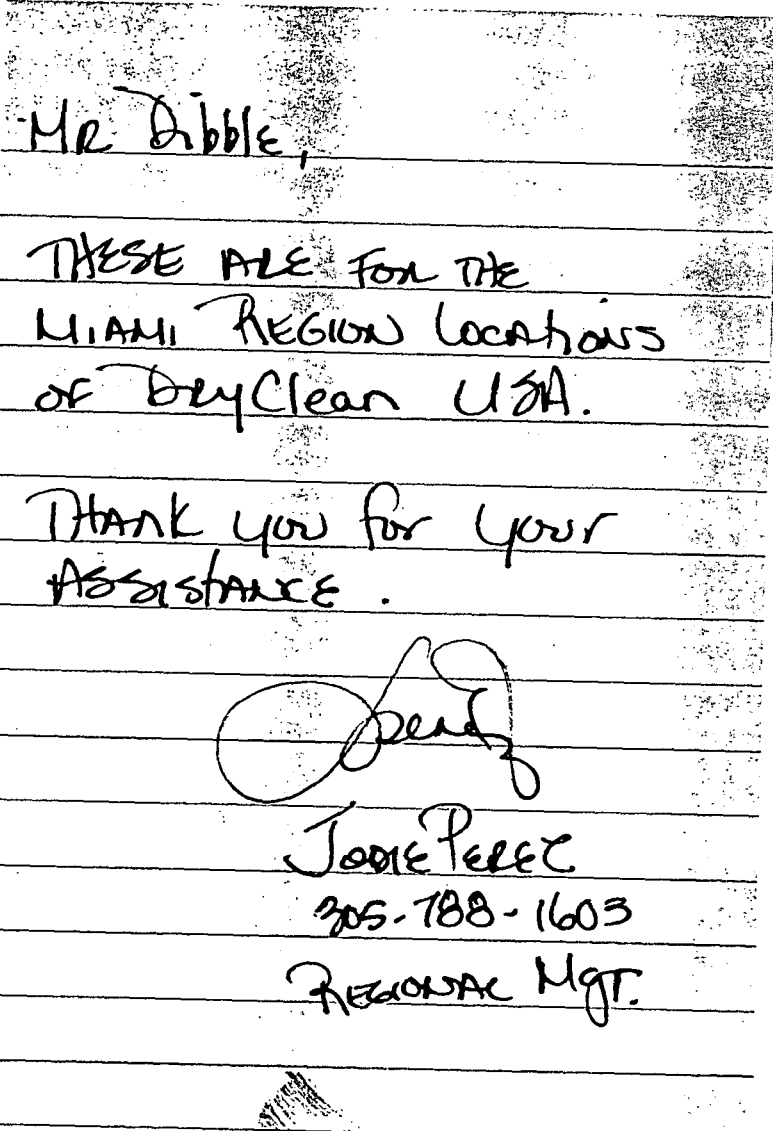 Mr Dibble,
THESE ARE FOR THE
MIAMI REGION LOCATIONS
OF DRYClean USA.
THANK you for your
ASSISTANCE.
JODIE PEREZ
305-788-1603
REGIONAL MgT.